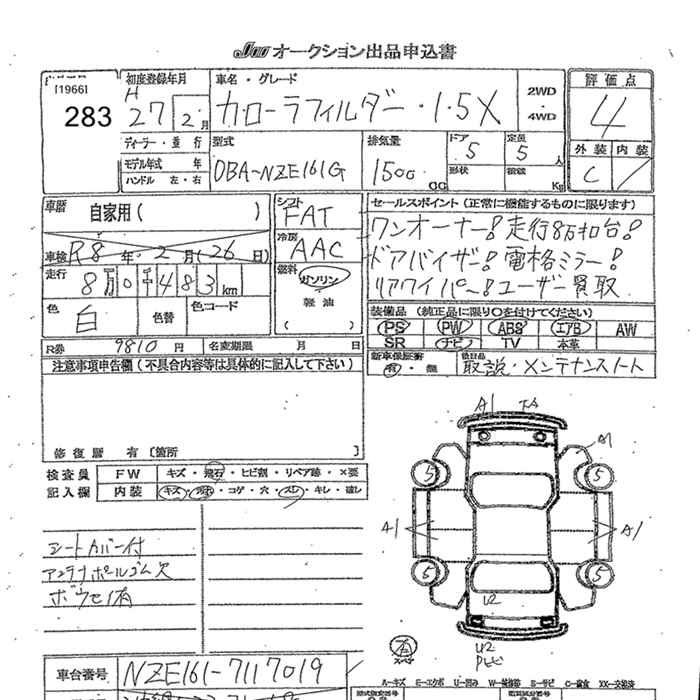 JU オークション出品申込書
[1966]
283
初度登録年月
H 27 2 月
車名・グレード
カローラフィルダー・1.5X
2WD・4WD
評価点
4
外装 内装
C
ディーラー・並行
モデル年式 年
ハンドル 左・右
型式
DBA-NZE161G
排気量
1500 CC
ドア 5
定員 5 人
形状
積載 Kg
車歴 自家用( )
車検 R8年2月(26日)
走行 8万0千483km
色 白 色替
色コード
シフト FAT
冷房 AAC
燃料 ガソリン
軽油
( )
セールスポイント(正常に機能するものに限ります)
ワンオーナー!走行8万キロ台!
ドアバイザー!電格ミラー!
リアワイパー!ユーザー買取
装備品(純正品に限り○を付けてください)
PS PW ABS エアB AW
SR ナビ TV 本革
新車保証書 有・無
後日品 取説・メンテナンスノート
R券 9810 円 名変期限 月 日
注意事項申告欄(不具合内容等は具体的に記入して下さい)
修復歴 有〔箇所 〕
検査員 FW キズ・飛石・ヒビ割・リペア跡・×要
記入欄 内装 キズ・汚れ・コゲ・穴・スレ・キレ・破レ
シートカバー付
アンテナポールゴム欠
ボウセイ有
A1
A1
5 5
A1 A1
5 5
U2
U2
右
スペア
A-キズ E-エクボ U-凹み W-補修跡 S-サビ C-腐食 XX-交換済
車台番号 NZE161-7117019